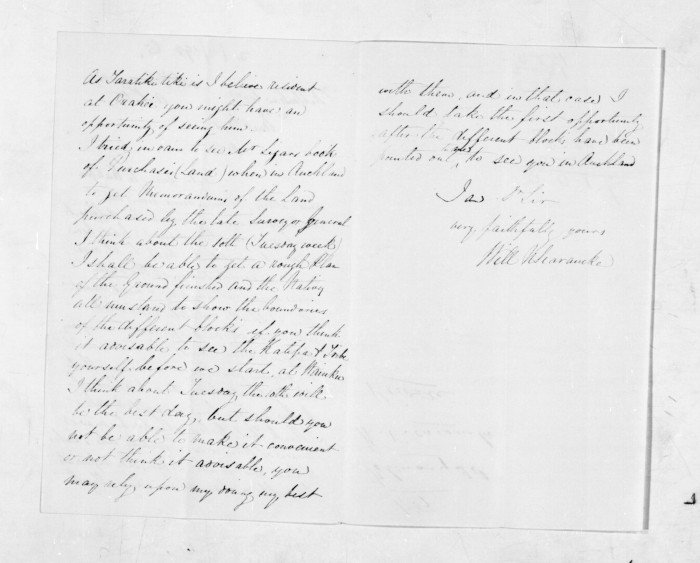 As Taratikitiki is I believe resident
at Orakei you might have an
opportunity of seeing him.
I tried in vain to see Mr Ligars book
of Purchases (Land) when in Auckland
to get Memorandums of the Land
purchased by the late Surveyor General
I think about the 10th (Tuesday week)
I shall be able to get a rough Plan
of the Ground finished and the Natives
all insist and to show the boundaries
of the different blocks if you think
it advisable to see the Katipa & Tribe
yourself before we start, at Waiuku
I think about Tuesday the 10th will
be the best day, but should you
not be able to make it convenient
or not think it advisable, you
may rely upon my doing my best
with them, and in that case I
should take the first opportunity
after the different blocks have been
pointed out to see you in Auckland
I am Dr Sir
very faithfully yours
Will N Searancke